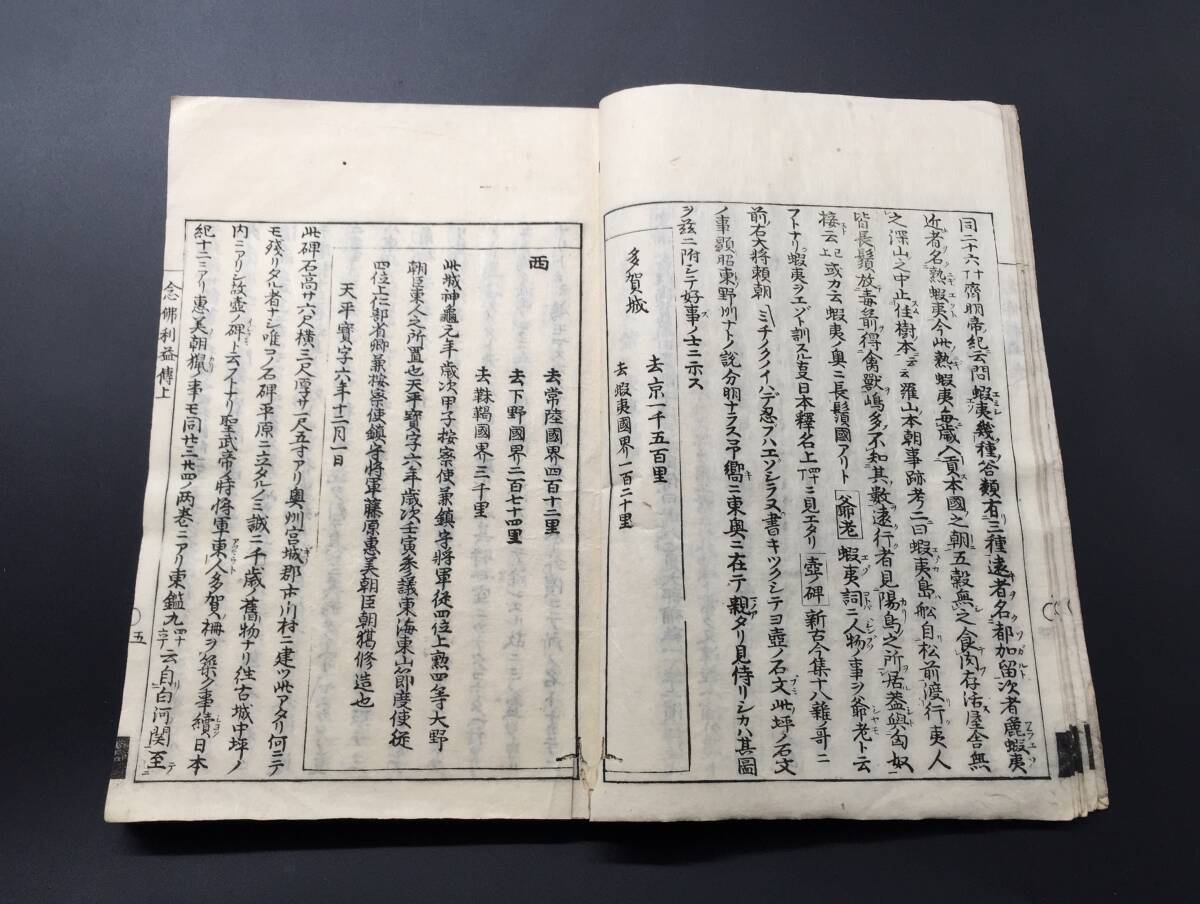 同二十六卄齊明帝紀云問蝦夷幾種答類有三種遠者名都加留次者麁蝦夷
近者名熟蝦夷今此熟蝦夷毎歳入貢本國之朝五穀無之食肉存活屋舎無
之深山之中止住樹本云云羅山本朝事跡考ニ曰蝦夷島舩自松前渡行夷人
皆長鬚放毒前得禽獸嶋多不知其數遠行者見陽烏之所居蓋與匈奴
接云云已上或カ云蝦夷ノ奥ニ長鬚國アリト 爺老 蝦夷ノ詞ニ人物事ヲ爺老ト云
フトナリ蝦夷ヲエゾト訓スル支日本釋名上四十丁ニ見エタリ 壺ノ碑 新古今集十八雜ノ哥ニ
前右大將頼朝 ミチノクノイハデ忍フハエゾシラヌ書キツクシテヨ壺ノ石文此坪ノ石文
ノ事顕昭東野州ナトノ説分明ナラス予嚮ニ東奥ニ在テ親タリ見侍リシカハ其圖
ヲ茲ニ附シテ好事ノ士ニ示ス
多賀城
去京一千五百里
去蝦夷國界一百二十里
去常陸國界四百十二里
西
去下野國界二百七十四里
去靺鞨國界三千里
此城神龜元年歳次甲子按察使兼鎮守將軍從四位上勲四等大野
朝臣東人之所置也天平寶字六年歳次壬寅參議東海東山節度使從
四位上仁部省卿兼按察使鎮守將軍藤原惠美朝臣朝獦修造也
天平寶字六年十二月一日
此碑石高サ六尺横三尺厚サ一尺五寸アリ奥州宮城郡市川村ニ建ツ此アタリ何ニテ
モ残リタル者ナシ唯コノ石碑平原ニ立タルノミ誠ニ千歳ノ舊物ナリ往古城中坪ノ
内ニアリシ故壺ノ碑ト云フトナリ聖武帝ノ時將軍東人多賀ノ柵ヲ築ノ事續日本
紀十二ニアリ惠美朝獦ノ事モ同廿三廿四ノ两巻ニアリ東鑑九四十云自白河關至
念佛利益傳上
五